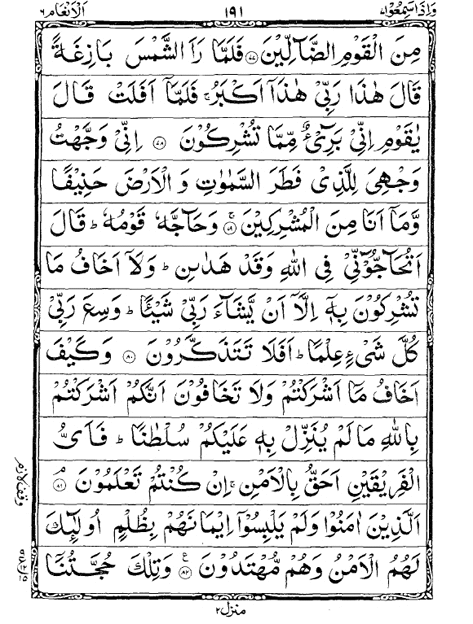 وَاِذَا سَمِعُوْا ٧ ١٩١ اَلْاَنْعَام ٦
مِنَ الْقَوْمِ الضَّآلِّيْنَ ﴿٧٧﴾ فَلَمَّا رَاَ الشَّمْسَ بَازِغَةً
قَالَ هٰذَا رَبِّيْ هٰذَاۤ اَكْبَرُ ۚ فَلَمَّاۤ اَفَلَتْ قَالَ
يٰقَوْمِ اِنِّيْ بَرِيْٓءٌ مِّمَّا تُشْرِكُوْنَ ﴿٧٨﴾ اِنِّيْ وَجَّهْتُ
وَجْهِيَ لِلَّذِيْ فَطَرَ السَّمٰوٰتِ وَ الْاَرْضَ حَنِيْفًا
وَّمَاۤ اَنَا مِنَ الْمُشْرِكِيْنَ ﴿٧٩﴾ۚ وَحَآجَّهٗ قَوْمُهٗ ؕ قَالَ
اَتُحَآجُّوْٓنِّيْ فِي اللّٰهِ وَقَدْ هَدٰىنِ ؕ وَلَاۤ اَخَافُ مَا
تُشْرِكُوْنَ بِهٖۤ اِلَّاۤ اَنْ يَّشَآءَ رَبِّيْ شَيْئًا ؕ وَسِعَ رَبِّيْ
كُلَّ شَيْءٍ عِلْمًا ؕ اَفَلَا تَتَذَكَّرُوْنَ ﴿٨٠﴾ وَكَيْفَ
اَخَافُ مَاۤ اَشْرَكْتُمْ وَلَا تَخَافُوْنَ اَنَّكُمْ اَشْرَكْتُمْ
بِاللّٰهِ مَا لَمْ يُنَزِّلْ بِهٖ عَلَيْكُمْ سُلْطٰنًا ؕ فَاَيُّ
الْفَرِيْقَيْنِ اَحَقُّ بِالْاَمْنِ ۚ اِنْ كُنْتُمْ تَعْلَمُوْنَ ﴿٨١﴾ۘ
اَلَّذِيْنَ اٰمَنُوْا وَلَمْ يَلْبِسُوْۤا اِيْمَانَهُمْ بِظُلْمٍ اُولٰٓئِكَ
لَهُمُ الْاَمْنُ وَهُمْ مُّهْتَدُوْنَ ﴿٨٢﴾ۧ وَتِلْكَ حُجَّتُنَاۤ
منزل ٢